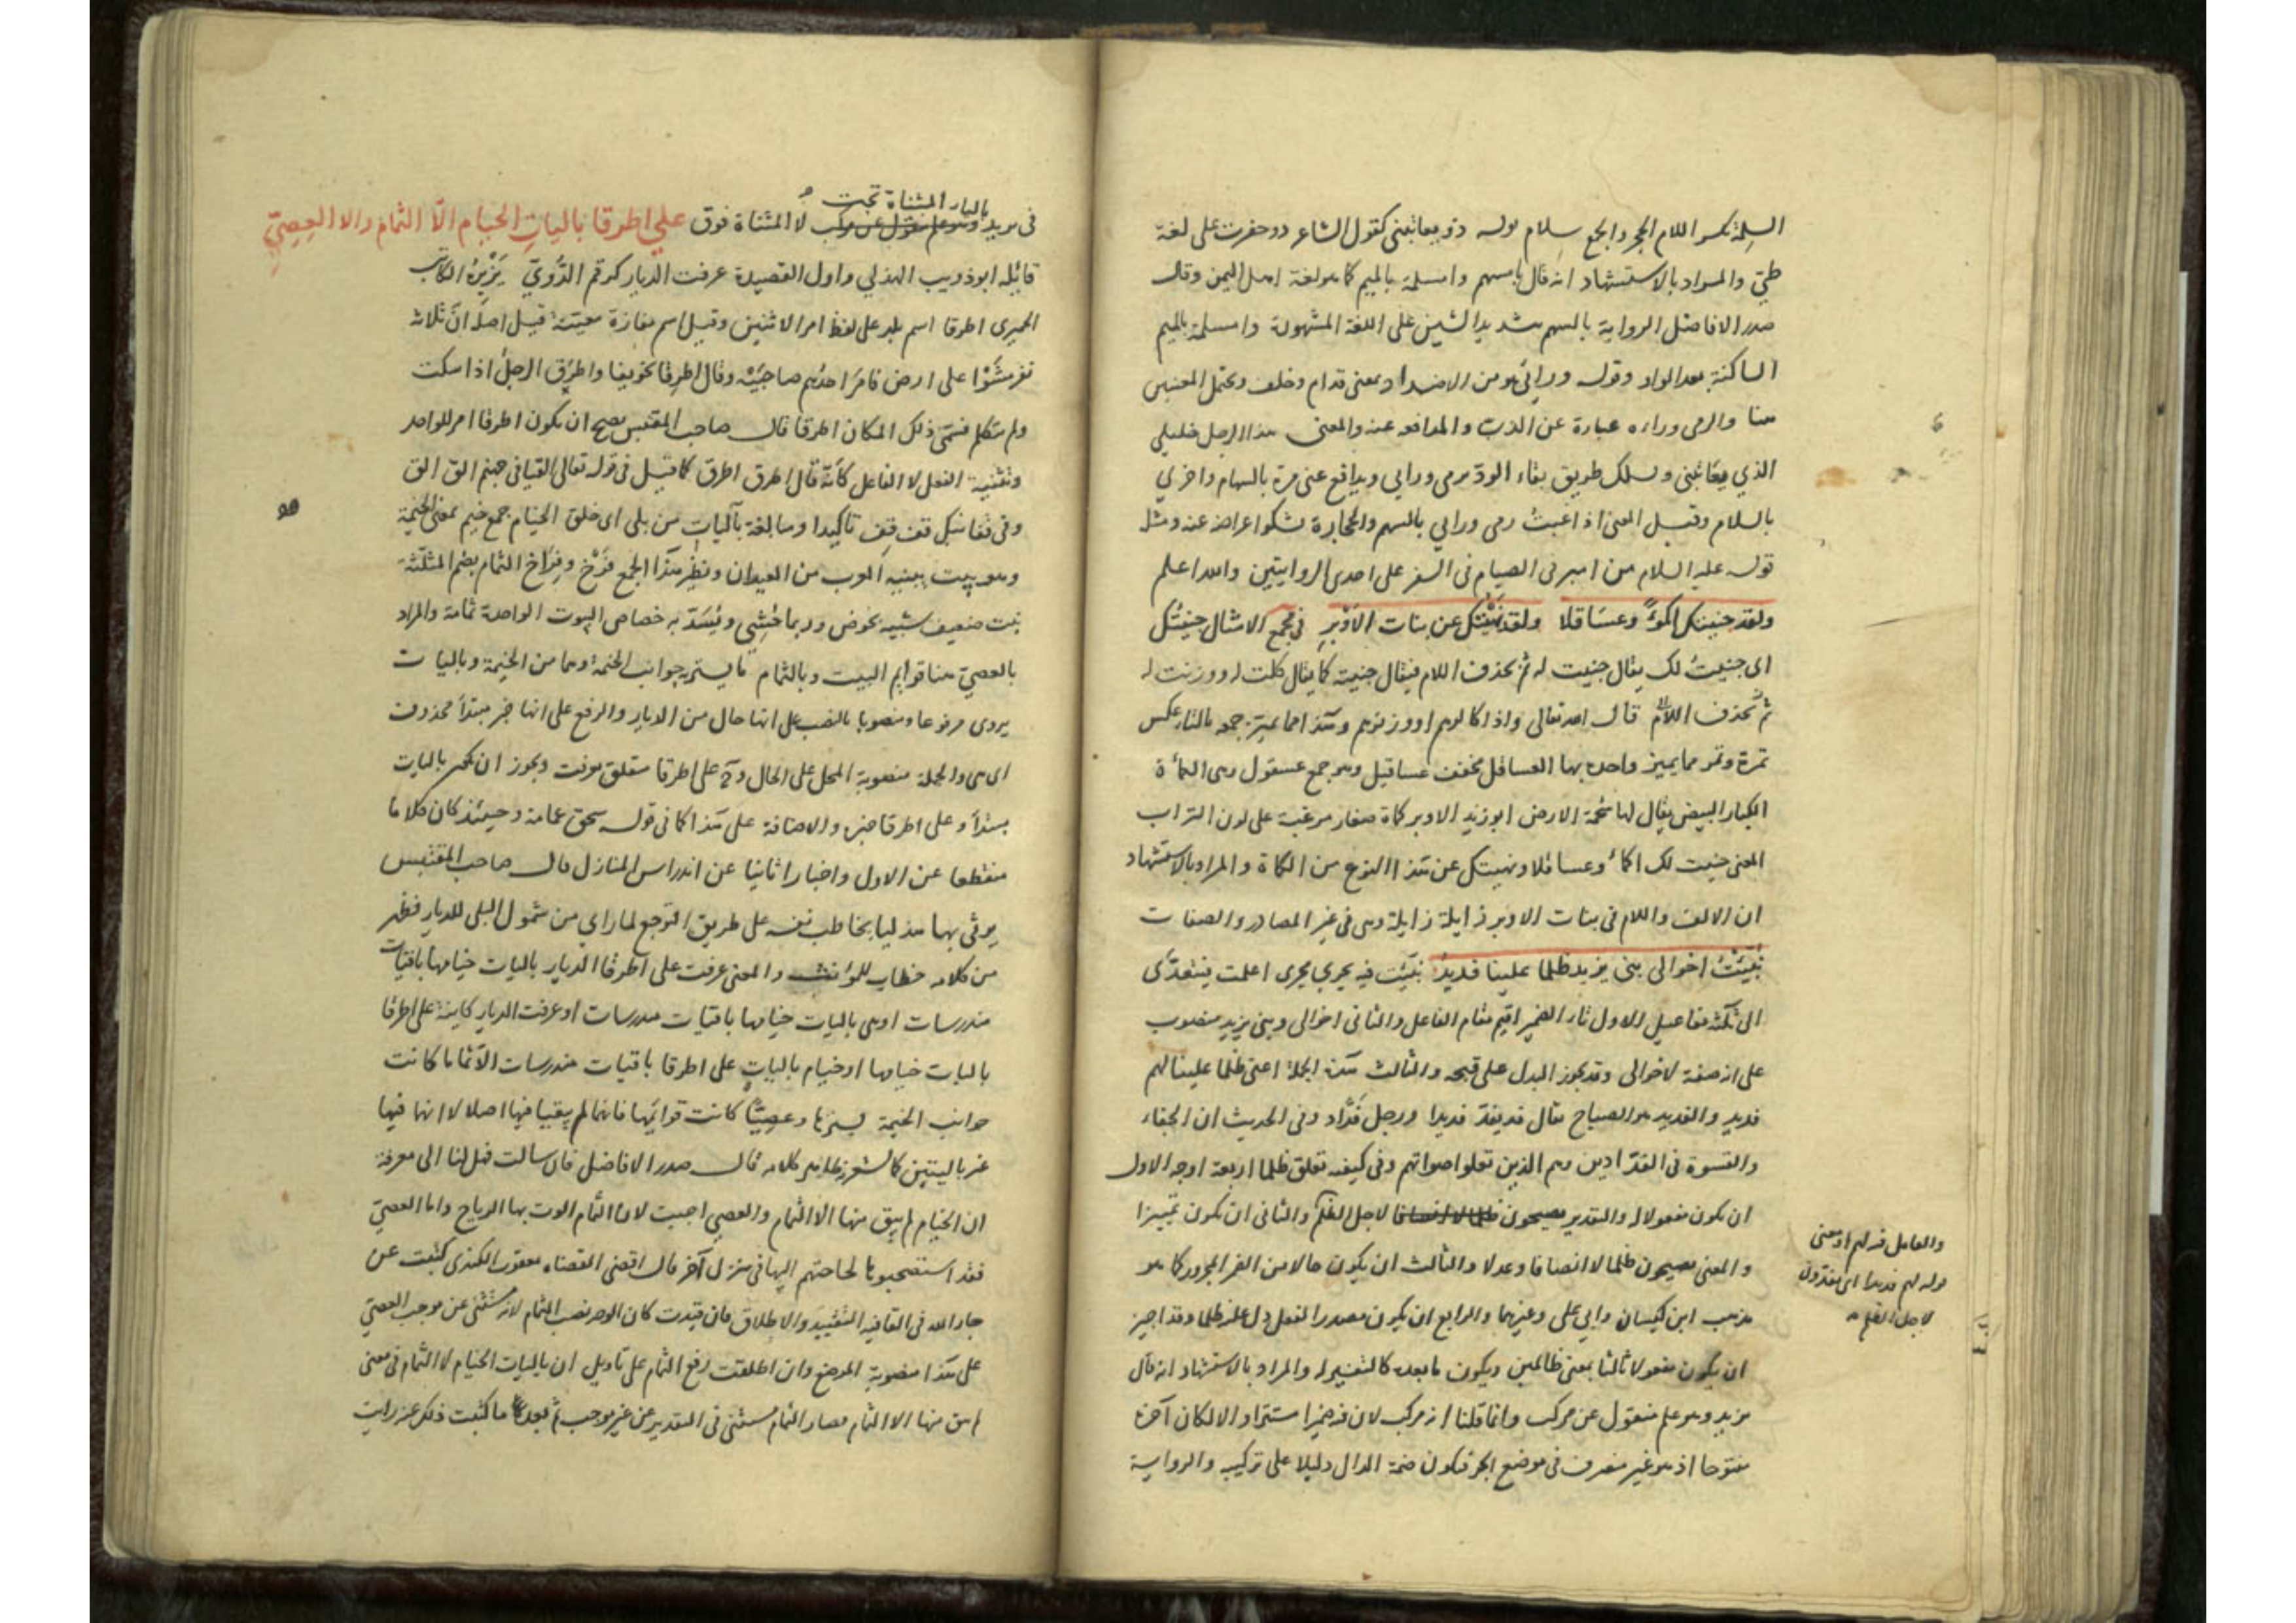 السلمة بكسر اللام الحجر والجمع سلام قوله ذو يعاتبني كقول الشاعر ذو حفرت على لغة
طيّ والمراد بالاستشهاد انه قال بامسهم وامسلمة بالميم كما هو لغة اهل اليمن وقال
صدر الافاضل الرواية بالسهم بتشديد السين على اللغة المشهورة وامسلمة بالميم
الساكنة بعد الواو وقوله ورائي هو من الاضداد بمعنى قدام وخلف ويحتمل المعنيين
هنا والرمي وراءه عبارة عن الذب والمدافعة عنه والمعنى هذا الرجل خليلي
الذي يعاتبني ويسلك طريق بقاء الود يرمي ورايي ويدافع عني مرة بالسهام واخري
بالسلام وقيل المعنى اذا غبت رمى ورايي بالسهم والحجارة يشكو اعراضه عنه ومثل
قوله عليه السلام من امبر في الصيام في السفر على احدى الروايتين والله اعلم
ولقد جنيتك اكمؤا وعساقلا ولقد نهيتك عن بنات الاوبر في مجمع الامثال جنيتك
اى جنيت لك يقال جنيت له ثم يحذف اللام فيقال جنيته كما يقال كلت له ووزنت له
ثم يحذف اللام قال الله تعالى واذا كالوهم او وزنوهم وهذا مما يميز جمعه بالتاء عكس
تمرة وتمر مما يميز واحده بها العساقل مخفف عساقيل وهو جمع عسقول وهى الكمأة
الكبار البيض يقال لها شحمة الارض ابو زيد الاوبر كماة صغار مزغبة على لون التراب
المعنى جنيت لك اكمأ وعساقلا ونهيتك عن هذا النوع من الكماة والمراد بالاستشهاد
ان الالف واللام في بنات الاوبر زايلة زايلة وهى في غير المصادر والصفات
نبّئت اخوالى بني يزيد ظلما علينا فديد نبّئت فيه يجري مجرى اعلمت فيتعدّى
الى ثلثة مفاعيل الاول تاء الضمير اقيم مقام الفاعل والثانى اخوالى وبني يزيد منصوب
على انه صفة لاخوالى وقد يجوز البدل على قبحه والثالث هذه الجملة اعنى ظلما علينا لهم
فديد والفديد هو الصياح يقال فد يفدّ فديدا ورجل فدّاد وفى الحديث ان الجفاء
والقسوة في الفدّادين وهم الذين تعلو اصواتهم وفى كيفية تعلق ظلما اربعة اوجه الاول
ان يكون مفعولا له والتقدير يصيحون ظلما لا انصافا لاجل الظلم والثانى ان يكون تمييزا
والمعنى يصيحون ظلما لا انصافا وعدلا والثالث ان يكون حالا من الضمير المجرور كما هو
مذهب ابن كيسان وابي على وغيرهما والرابع ان يكون مصدرا لفعل دل عليه ظلما وقد اجيز
ان يكون مفعولا ثالثا بمعنى ظالمين ويكون ما بعده كالتفسير له والمراد بالاستشهاد انه قال
يزيد وهو علم منقول عن مركب وانما قلنا انه مركب لان فيه ضميرا مستترا والا لكان آخره
مفتوحا اذ هو غير منصرف في موضع الجر فيكون ضمة الدال دليلا على تركيب والرواية
والعامل فيه لهم او معنى
قوله لهم فديدا اى يفدّون
لاجل الظلم
بالياء المثناة تحت
في يزيد وهو علم منقول عن مركب لا المثناة فوق على اطرقا باليات الخيام الّا الثمام والا العصيّ
قائله ابو ذويب الهذلي واول القصيدة عرفت الديار كرقم الدّويّ يزبره الكاتب
الحميرى اطرقا اسم بلد على لفظ امر الاثنين وقيل اسم مفازة معيّنة قيل اصله انّ ثلاثة
نفر مشوا على ارض فامر احدهم صاحبيه وقال اطرقا تخويفا واطرق الرجل اذا سكت
ولم يتكلم فسمّى ذلك المكان اطرقا قال صاحب المقتبس يصح ان يكون اطرقا امر للواحد
وتثنية الفعل لا الفاعل كانّه قال اطرق اطرق كما قيل في قوله تعالى القيا في جهنم الق الق
وفى قفا نبك قف قف تاكيدا ومبالغة باليات من بلى اى خلق الخيام جمع خيم بمعنى الخيمة
وهو بيت يبنيه العرب من العيدان ونظير هذا الجمع فرخ وفراخ الثمام بضم المثلثة
نبت ضعيف شبيه بخوص وربما حشي ويسدّ به خصاص البيوت الواحدة ثمامة والمراد
بالعصيّ هنا قوايم البيت وبالثمام ما يستر به جوانب الخيمة وهما من الخيمة وباليات
يروى مرفوعا ومنصوبا بالنصب على انها حال من الديار والرفع على انها خبر مبتدأ محذوف
اى هى والجملة منصوبة المحل على الحال و على اطرقا متعلق بعرفت ويجوز ان يكون باليات
مبتدأ و على اطرقا خبره والاضافة على هذا كما في قوله سحق عمامة وحينئذ كان كلاما
منقطعا عن الاول واخبارا ثانيا عن اندراس المنازل قال صاحب المقتبس
يوتى بها هذليا يخاطب نفسه على طريق التوجع لما راى من شمول البلى للديار فظهر
من كلامه خطاب للمؤنث والمعنى عرفت على اطرقا الديار باليات خيامها باقيات
مندرسات او هى باليات خيامها باقيات مندرسات او عرفت الديار كاينة على اطرقا
باليات خيامها او خيام باليات على اطرقا باقيات مندرسات الّا ثماما كانت
جوانب الخيمة يسترها وعصيّا كانت قوائمها فانهما لم يبقيا فيها اصلا لا انها فيها
غير باليتين كما يشعر ظاهر كلامه قال صدر الافاضل فان سالت فهل لنا الى معرفة
ان الخيام لم يبق منها الا الثمام والعصي اجبت لان الثمام الوت بها الرياح واما العصيّ
فقد استصحبوها لحاجتهم اليها في منزل آخر قال اقضى القضاة يعقوب الكندى كتبت عن
جار الله في القافية التقييد والاطلاق فان قيدت كان الوجه نصب الثمام لانه مستثنى عن موجب العصيّ
على هذا منصوبة الموضع وان اطلقت رفع الثمام على تاويل ان باليات الخيام لا الثمام في معنى
لم يبق منها الا الثمام فصار الثمام مستثنى في التقدير عن غير موجب ثم بعد ما كتبت ذلك عنه رايت